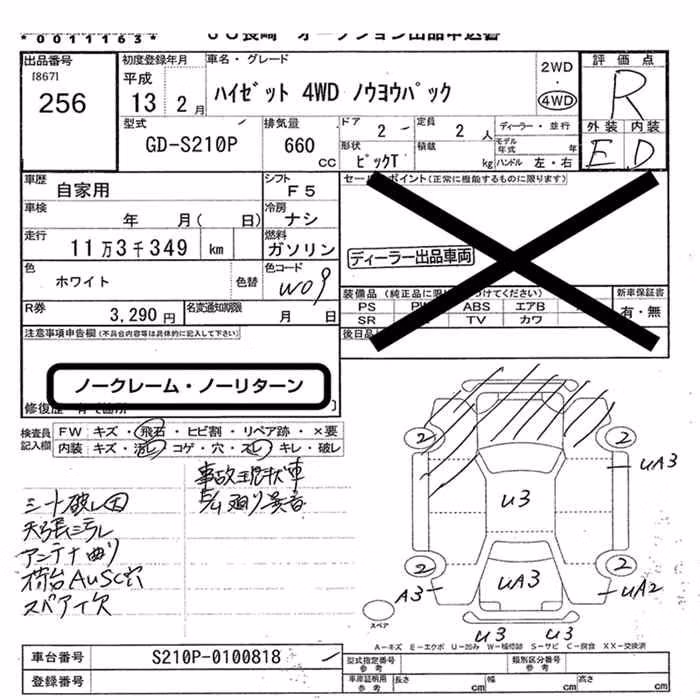 *0011163*
JU長崎 オークション出品申込書
出品番号
[867]
256
初度登録年月
平成
13 2月
車名・グレード
ハイゼット 4WD ノウヨウパック
2WD
・
4WD
評価点
R
外装 内装
E D
型式
GD-S210P
排気量
660
cc
ドア
2
定員
2 人
ディーラー・並行
形状
ピックT
積載
kg
モデル年式 年
ハンドル 左・右
車歴
自家用
シフト
F5
車検
年 月( 日)
冷房
ナシ
走行
11万3千349 km
燃料
ガソリン
色
ホワイト
色替
色コード
W09
R券
3,290円
名変通知期限
月 日
セールスポイント(正常に機能するものに限ります)
ディーラー出品車両
装備品(純正品に限り つけてください)
PS PW ABS エアB
SR TV カワ
新車保証書
有・無
後日品
注意事項申告欄(不具合内容等は具体的に記入して下さい)
ノークレーム・ノーリターン
修復歴
検査員記入欄
FW キズ・飛石・ヒビ割・リペア跡・×要
内装 キズ・汚レ・コゲ・穴・スレ・キレ・破レ
事故現状車
シート破レ大
天張ミラレ
アンテナ曲り
荷台AUSC穴
スペアイ欠
2 2
UA3
U3
2 2
A3 UA3 UA2
スペア
U3 U3
A−キズ E−エクボ U−凹み W−補修跡 S−サビ C−腐食 XX−交換済
車台番号
S210P-0100818
登録番号
型式指定番号
参考
類別区分番号
参考
車庫証明用
参考
長さ cm
幅 cm
高さ cm